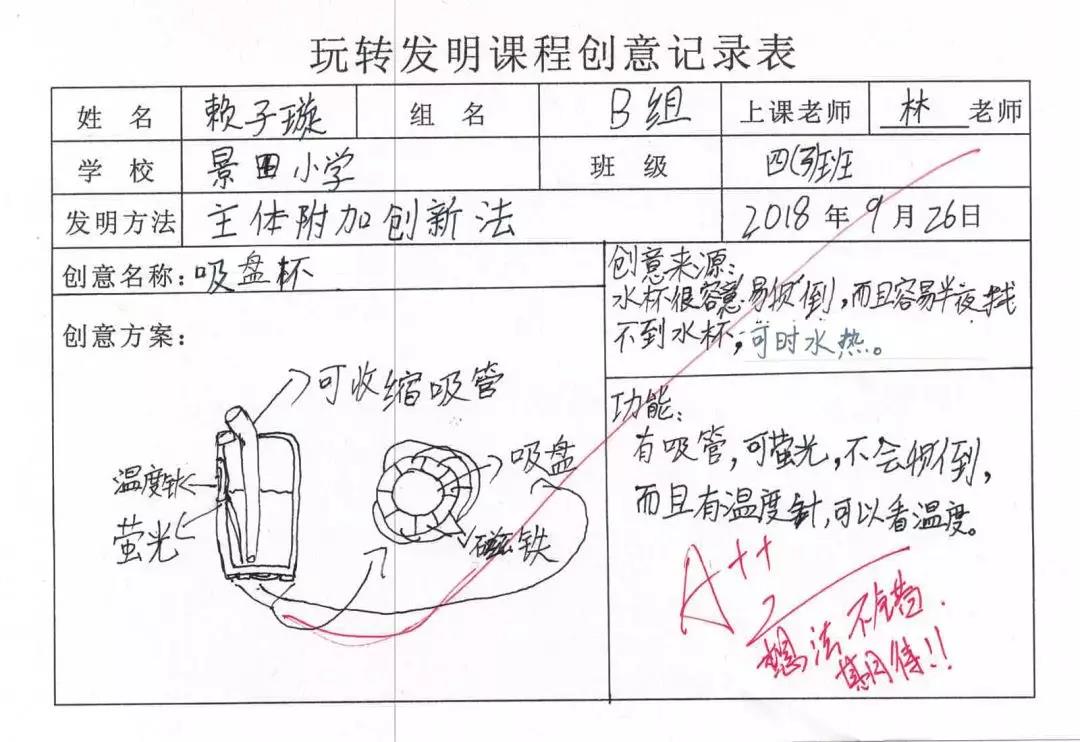 玩转发明课程创意记录表
姓 名 赖子璇 组 名 B组 上课老师 林 老师
学 校 景田小学 班 级 四(3)班
发明方法 主体附加创新法 2018年9月26日
创意名称:吸盘杯
创意方案:
可收缩吸管
温度针
萤光
吸盘
磁铁
创意来源:
水杯很容易 倒,而且容易半夜找
不到水杯,可时水热。
功能:
有吸管,可萤光,不会 倒,
而且有温度针,可以看温度。
A++
想法不错
期待!!